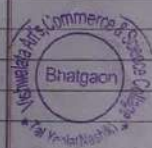 Vishwalata Art's, Commerce & Science College
Bhatgaon
Tal. Yeola (Nashik)